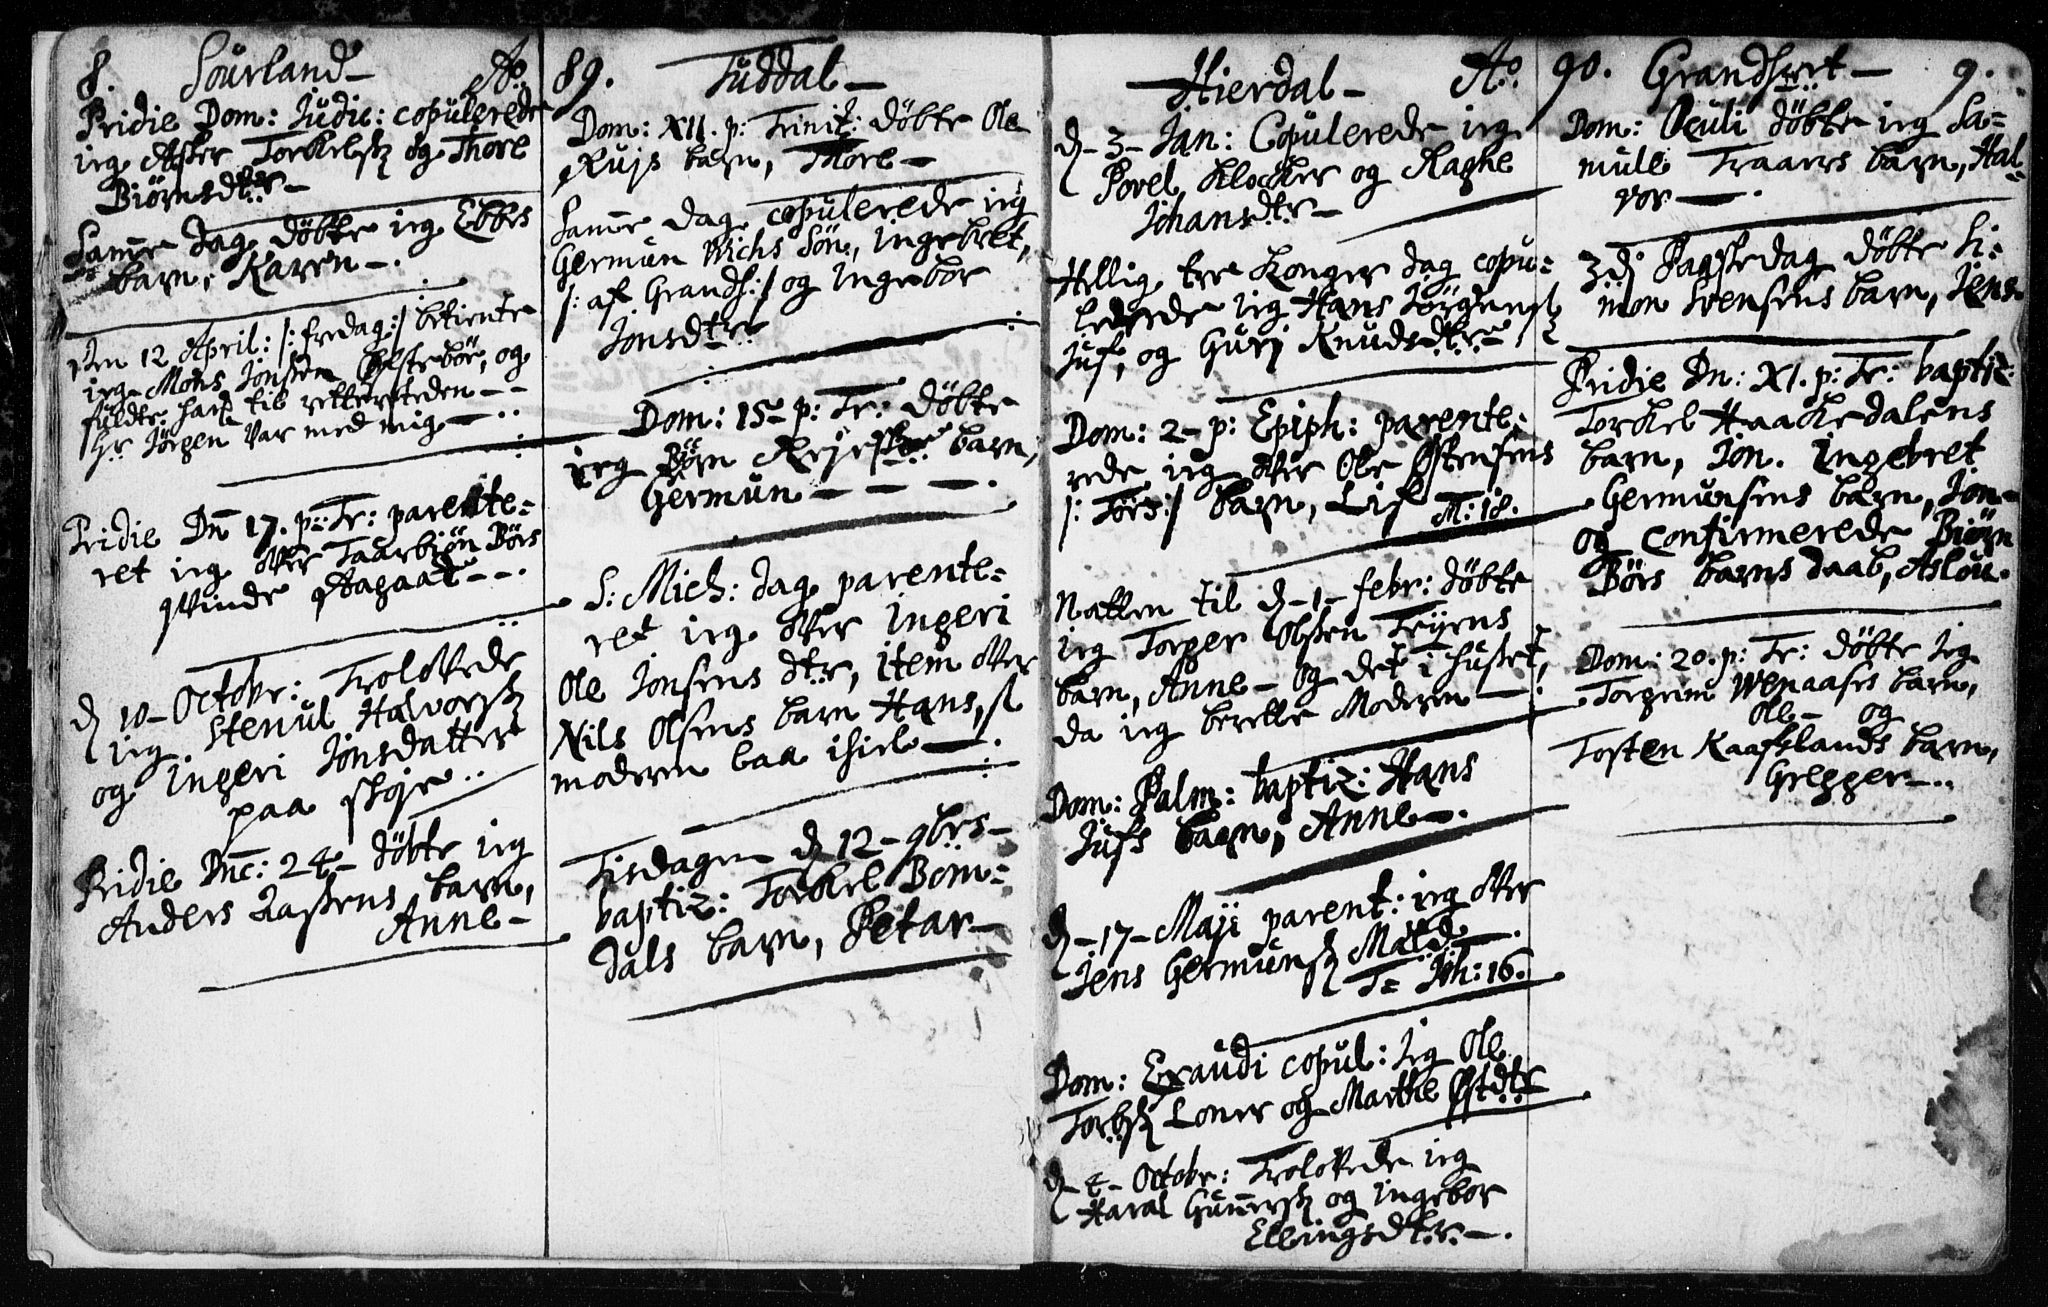 8. Sourland Ao
Pridie Dom: Judic: copulerede
ieg Asker Torkelss og Thore
Biørnsdtr
Samme dag døbte ieg Ebbes
barn, Karen.
Den 12 April: /: fredag :/ betiente
ieg Mons Jonssen Østebør, og
fuldte ham til rettersteden
Hr Jørgen var med mig
Pridie Dn 17. p: Tr: parente=
ret ieg over Taarbiøn Børs
qvinde Aagaat
d 10 Octobr: Trolovede
ieg Stenul Halvorss
og Ingeri Jonsdatter
paa skoje
Pridie Dnc: 24 døbte ieg
Anders Lassens barn,
Anne
89. Tuddal
Dom: XII. p: Trinit: døbte Ole
Rujs barn, Thore
Samme dag copulerede ieg
Germun Nichs Søn, Ingebret,
/: af Grands: / og Ingebor
Jonsdtr
Dom: 15 p: Tr: døbte
ieg Børn barn,
Germun
S: Mich: dag parente=
ret ieg over Ingeri
Ole Jonsens dtr, item over
Nils Olsens barn Hans,
moderen laa ihiel
Tisdagen d 12 9brs
baptiz: Torkel Bom=
dals barn, Petar
Hierdal Ao
d 3 Jan: Copulerede ieg
Povel Klocker og Ragne
Johansdtr
Hellig tre Konger dag copu=
lerede ieg Hans Jørgenss
Juf, og Guri Knudsdtr
Dom: 2 p: Epiph: parente=
rede ieg over Ole Østensens
/: Törs :/ barn, Lif M: 18.
Natten til d 1 febr: døbte
ieg Torger Olssen
barn, Anne og det i huset,
da ieg berette Moderen
Dom: Palm: baptiz: Hans
Jufs barn, Anne
d 17 Maji parent: ieg over
Jens Germunss
T= Joh: 16.
Dom: Exaudi copul: Jeg Ole
Torbss Loner og Marthe Østdtr
d 4 Octobr: Trolovede ieg
Haral Gunnerss og Ingebor
Ellingsdtr
90. Grandsret 9.
Dom: Oculi døbte ieg Sa=
mule Traars barn, Hal=
vor
3di Paaskedag døbte Si=
mon Svensens barn, Jens
Pridie Dn: XI. p: Tr: baptiz:
Torkel Haackedalens
barn, Jon. Ingebret
Germunsens barn, Jon
og Confirmerede Biørn
Börs barns daab, Aslou.
Dom: 20. p: Tr: døbte Jeg
Torgrim Wenaases barn,
Ole og
Tosten Kaaslands barn,
Gregger